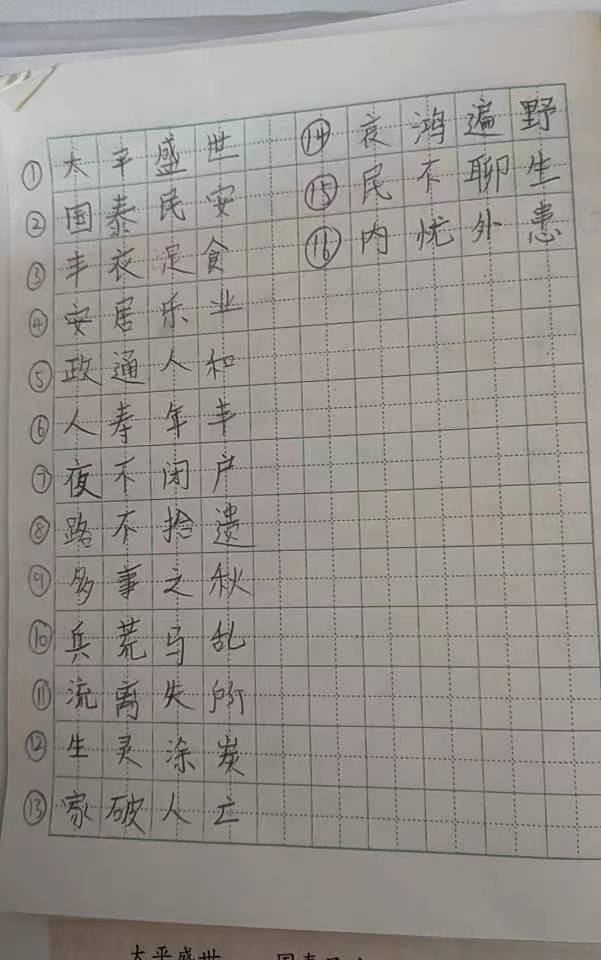 ①太平盛世
②国泰民安
③丰衣足食
④安居乐业
⑤政通人和
⑥人寿年丰
⑦夜不闭户
⑧路不拾遗
⑨多事之秋
⑩兵荒马乱
⑪流离失所
⑫生灵涂炭
⑬家破人亡
⑭哀鸿遍野
⑮民不聊生
⑯内忧外患
太平盛世 国泰民